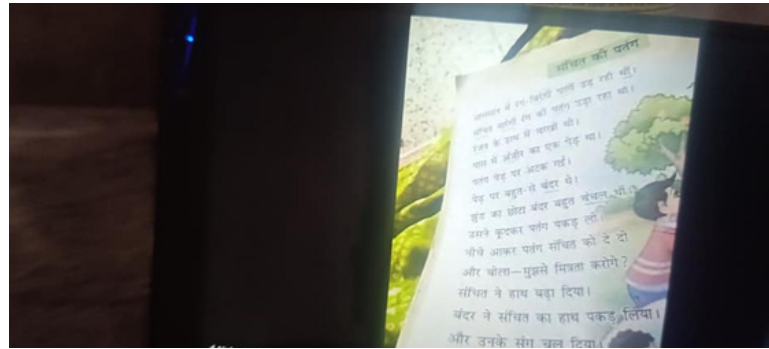 संचित की पतंग
आसमान में रंग-बिरंगी पतंगें उड़ रही थीं।
संचित नारंगी रंग की पतंग उड़ा रहा था।
रंजन के हाथ में चरखी थी।
पास में अंजीर का एक पेड़ था।
पतंग पेड़ पर अटक गई।
पेड़ पर बहुत-से बंदर थे।
झुंड का छोटा बंदर बहुत चंचल था।
उसने कूदकर पतंग पकड़ ली।
नीचे आकर पतंग संचित को दे दी
और बोला—मुझसे मित्रता करोगे?
संचित ने हाथ बढ़ा दिया।
बंदर ने संचित का हाथ पकड़ लिया।
और उनके संग चल दिया।